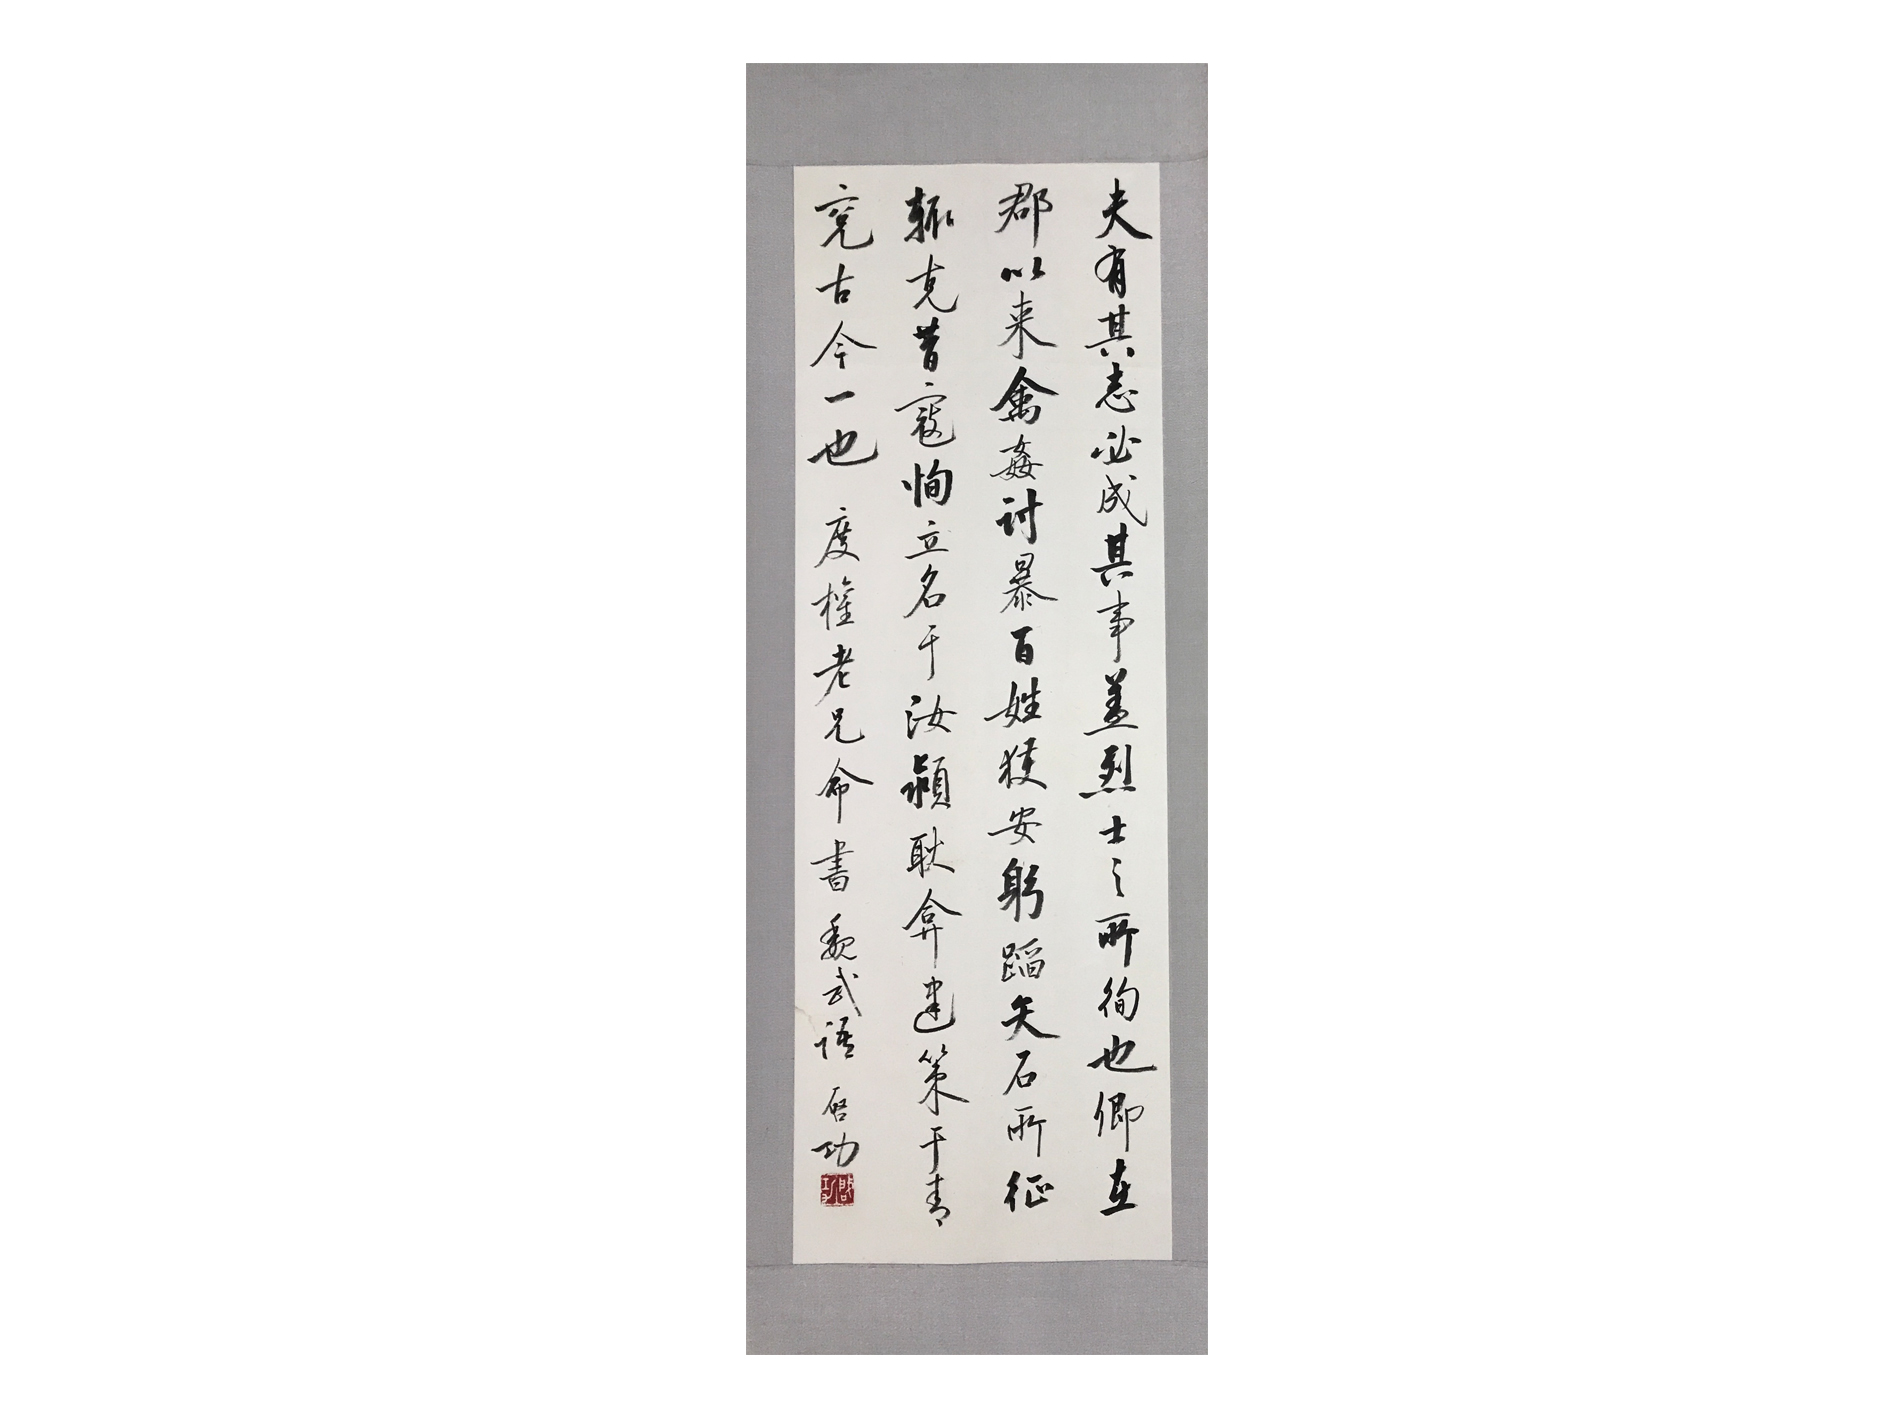 夫有其志必成其事蓋烈士之所徇也卿在
郡以来禽姦討暴百姓獲安躬蹈矢石所征
輒克昔寇恂立名于汝潁耿弇建策于青
兗古今一也 度權老兄命書 魏武語 啓功
啓功